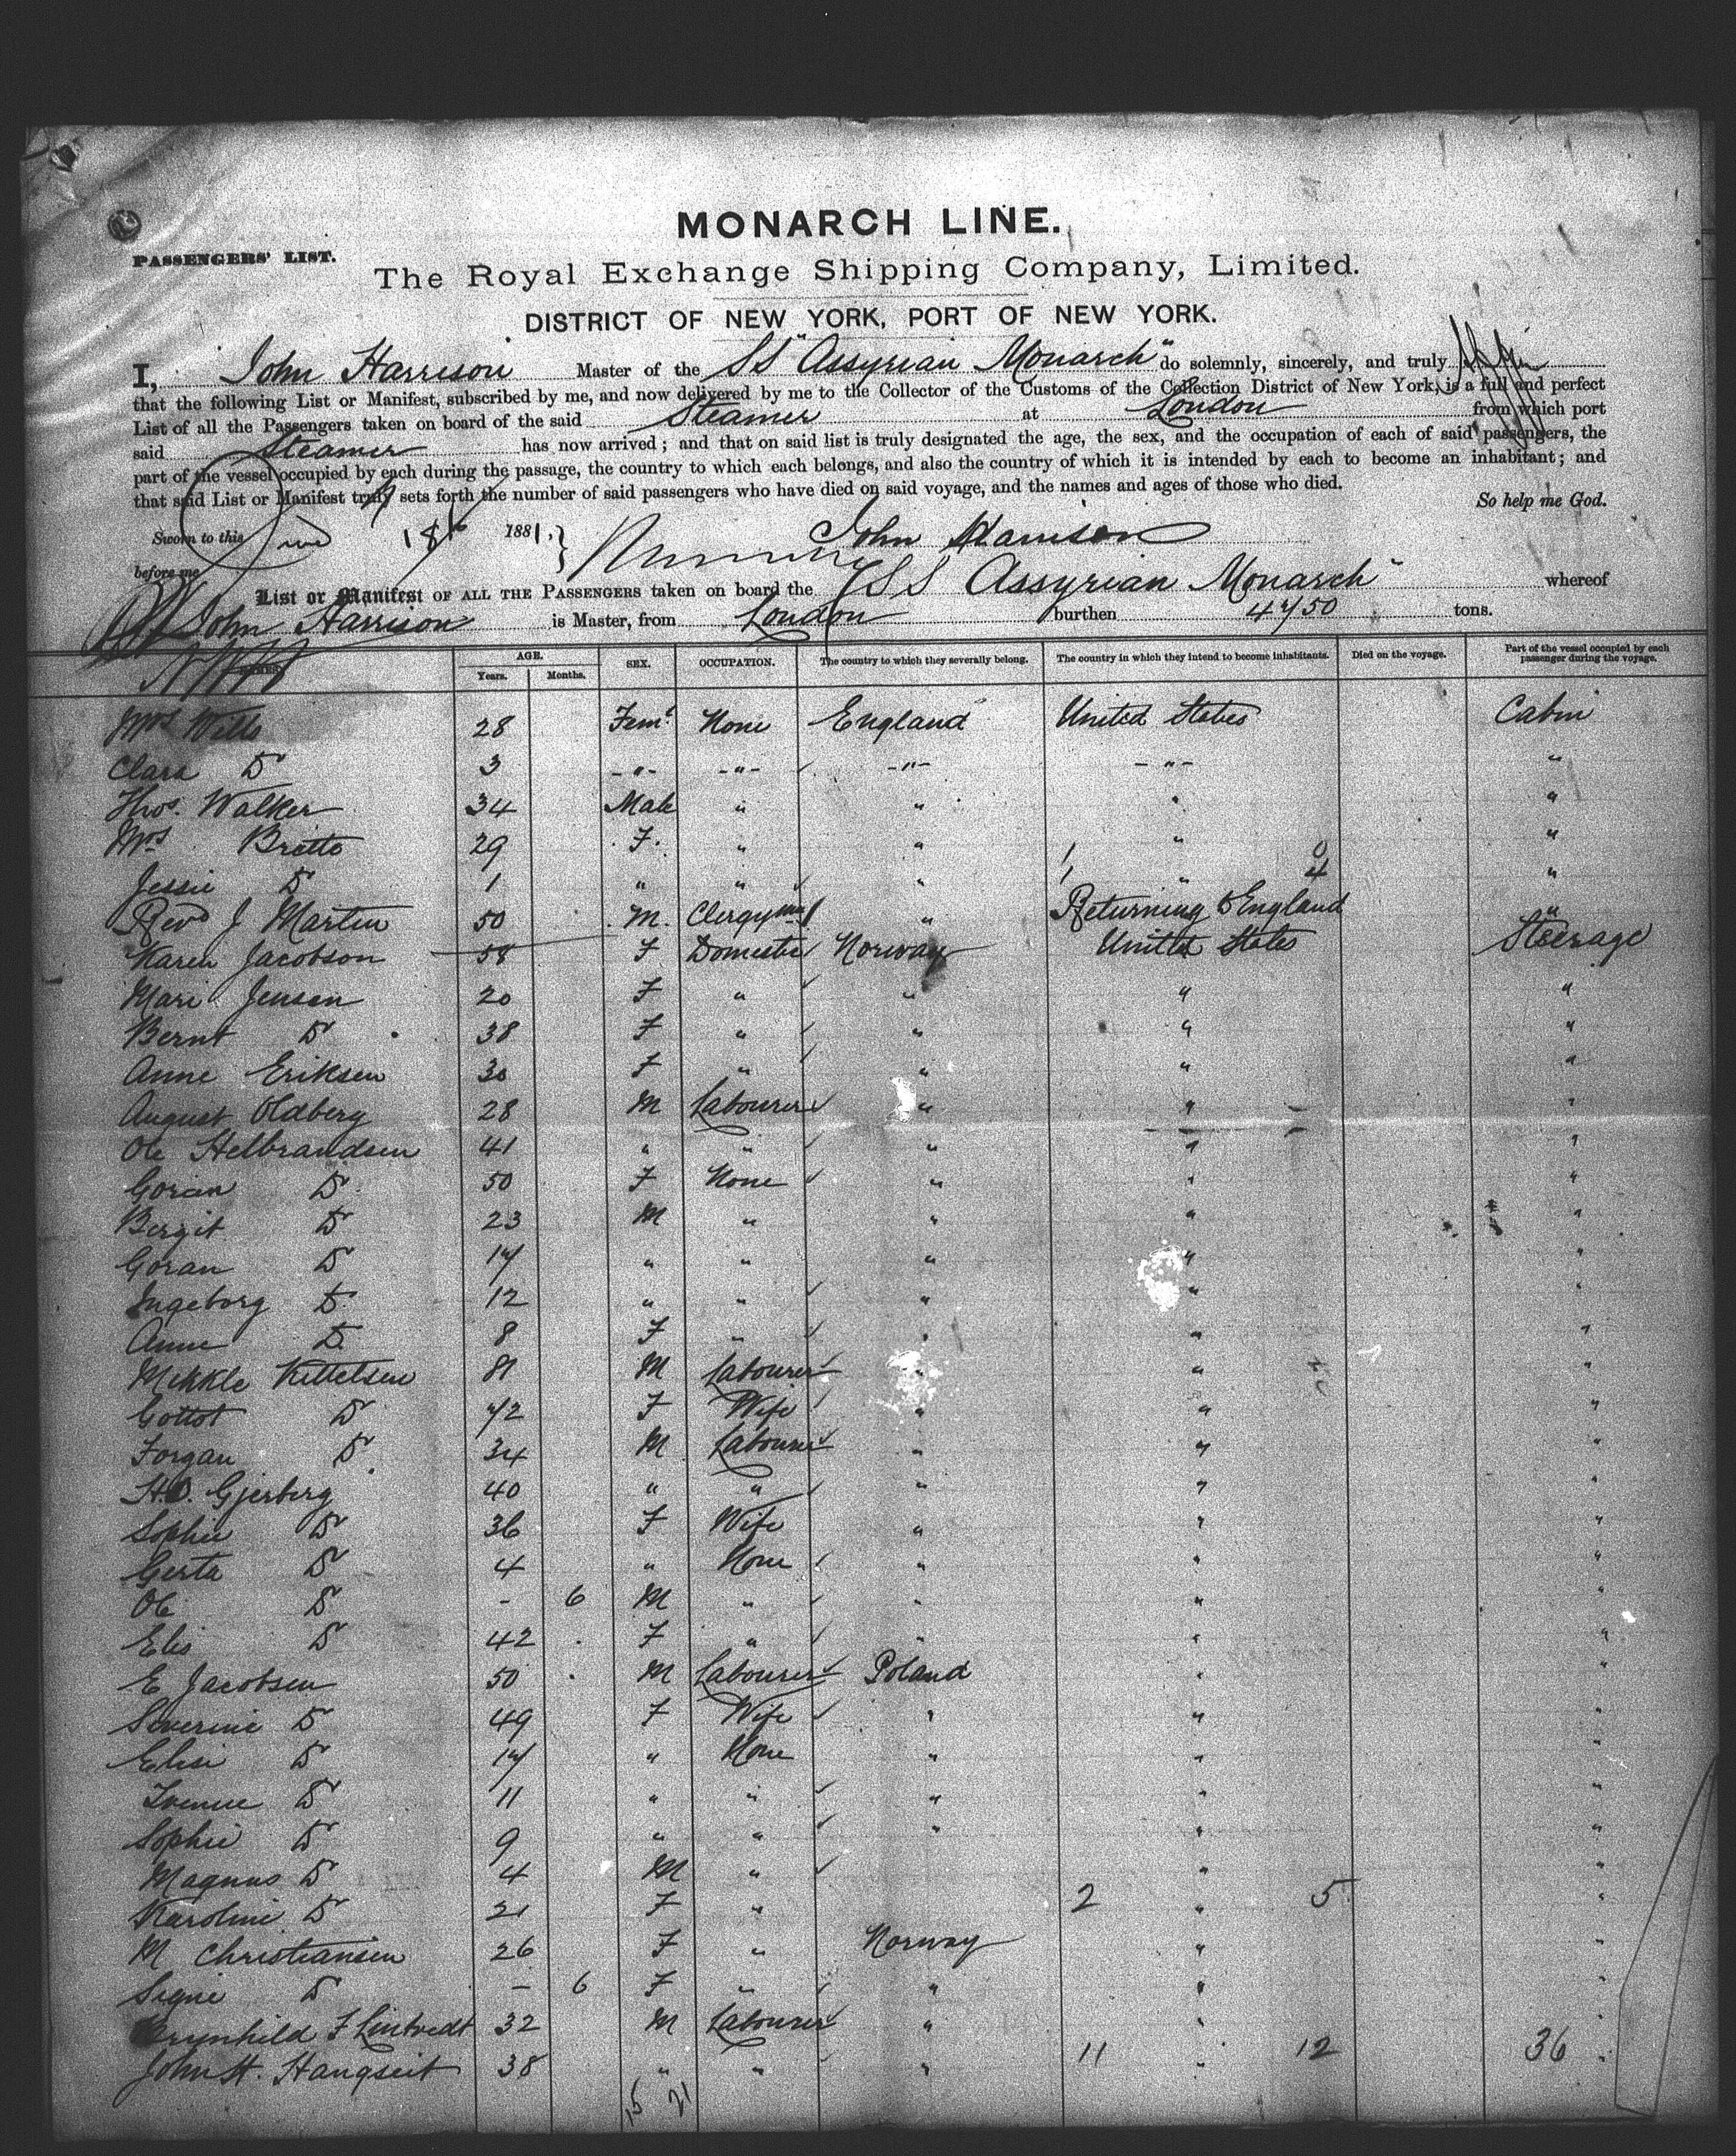 MONARCH LINE.
PASSENGERS' LIST.
The Royal Exchange Shipping Company, Limited.
DISTRICT OF NEW YORK, PORT OF NEW YORK.
I, John Harrison Master of the SS "Assyrian Monarch" do solemnly, sincerely, and truly
that the following List or Manifest, subscribed by me, and now delivered by me to the Collector of the Customs of the Collection District of New York, is a full and perfect
List of all the Passengers taken on board of the said Steamer at London from which port
said Steamer has now arrived; and that on said list is truly designated the age, the sex, and the occupation of each of said passengers, the
part of the vessel occupied by each during the passage, the country to which each belongs, and also the country of which it is intended by each to become an inhabitant; and
that said List or Manifest truly sets forth the number of said passengers who have died on said voyage, and the names and ages of those who died.
So help me God.
Sworn to this 18 1881, John Harrison
before me
List or Manifest OF ALL THE PASSENGERS taken on board the SS Assyrian Monarch whereof
John Harrison is Master, from London burthen 4750 tons.
NAMES AGE. SEX. OCCUPATION. The country to which they severally belong. The country in which they intend to become inhabitants. Died on the voyage. Part of the vessel occupied by each passenger during the voyage.
Years. Months.
Mrs Wills 28 Feml None England United States Cabin
Clara Do 3 -"- -"- -"- -"- "
Thos. Walker 34 Male " " " "
Mrs Britto 29 F. " " " "
Jessie Do 1 " " " " "
Revd J Martin 50 M. Clergyman " Returning to England "
Karen Jacobson 58 F Domestic Norway United States Steerage
Mari Jensen 20 F " " " "
Bernt Do 38 F " " " "
Anne Eriksen 30 F " " " "
August Oldberg 28 M Labourer " " "
Ole Helbrandsen 41 " " " " "
Goran Do 50 F None " " "
Bergit Do 23 M " " " "
Goran Do 17 " " " " "
Ingeborg Do 12 " " " " "
Anne Do 8 F " " " "
Mikkle Kittelsen 81 M Labourer " " "
Gottot Do 72 F Wife " " "
Forgan Do 34 M Labourer " " "
H.O. Gjerberg 40 " " " " "
Sophie Do 36 F Wife " " "
Gerta Do 4 " None " " "
Ole Do - 6 M " " " "
Elis Do 42 F " " " "
E Jacobsen 50 M Labourer Poland " "
Severine Do 49 F Wife " " "
Elise Do 17 " None " " "
Do 11 " " " " "
Sophie Do 9 " " " " "
Magnus Do 4 M " " "
Karoline Do 21 F " 2 " 5 "
M Christiansen 26 F " Norway " "
Signe Do - 6 F " " " "
Brynhild F Lintvedt 32 M Labourer " " "
John H. Hangseit 38 " " " 11 " 12 36 "
15 21